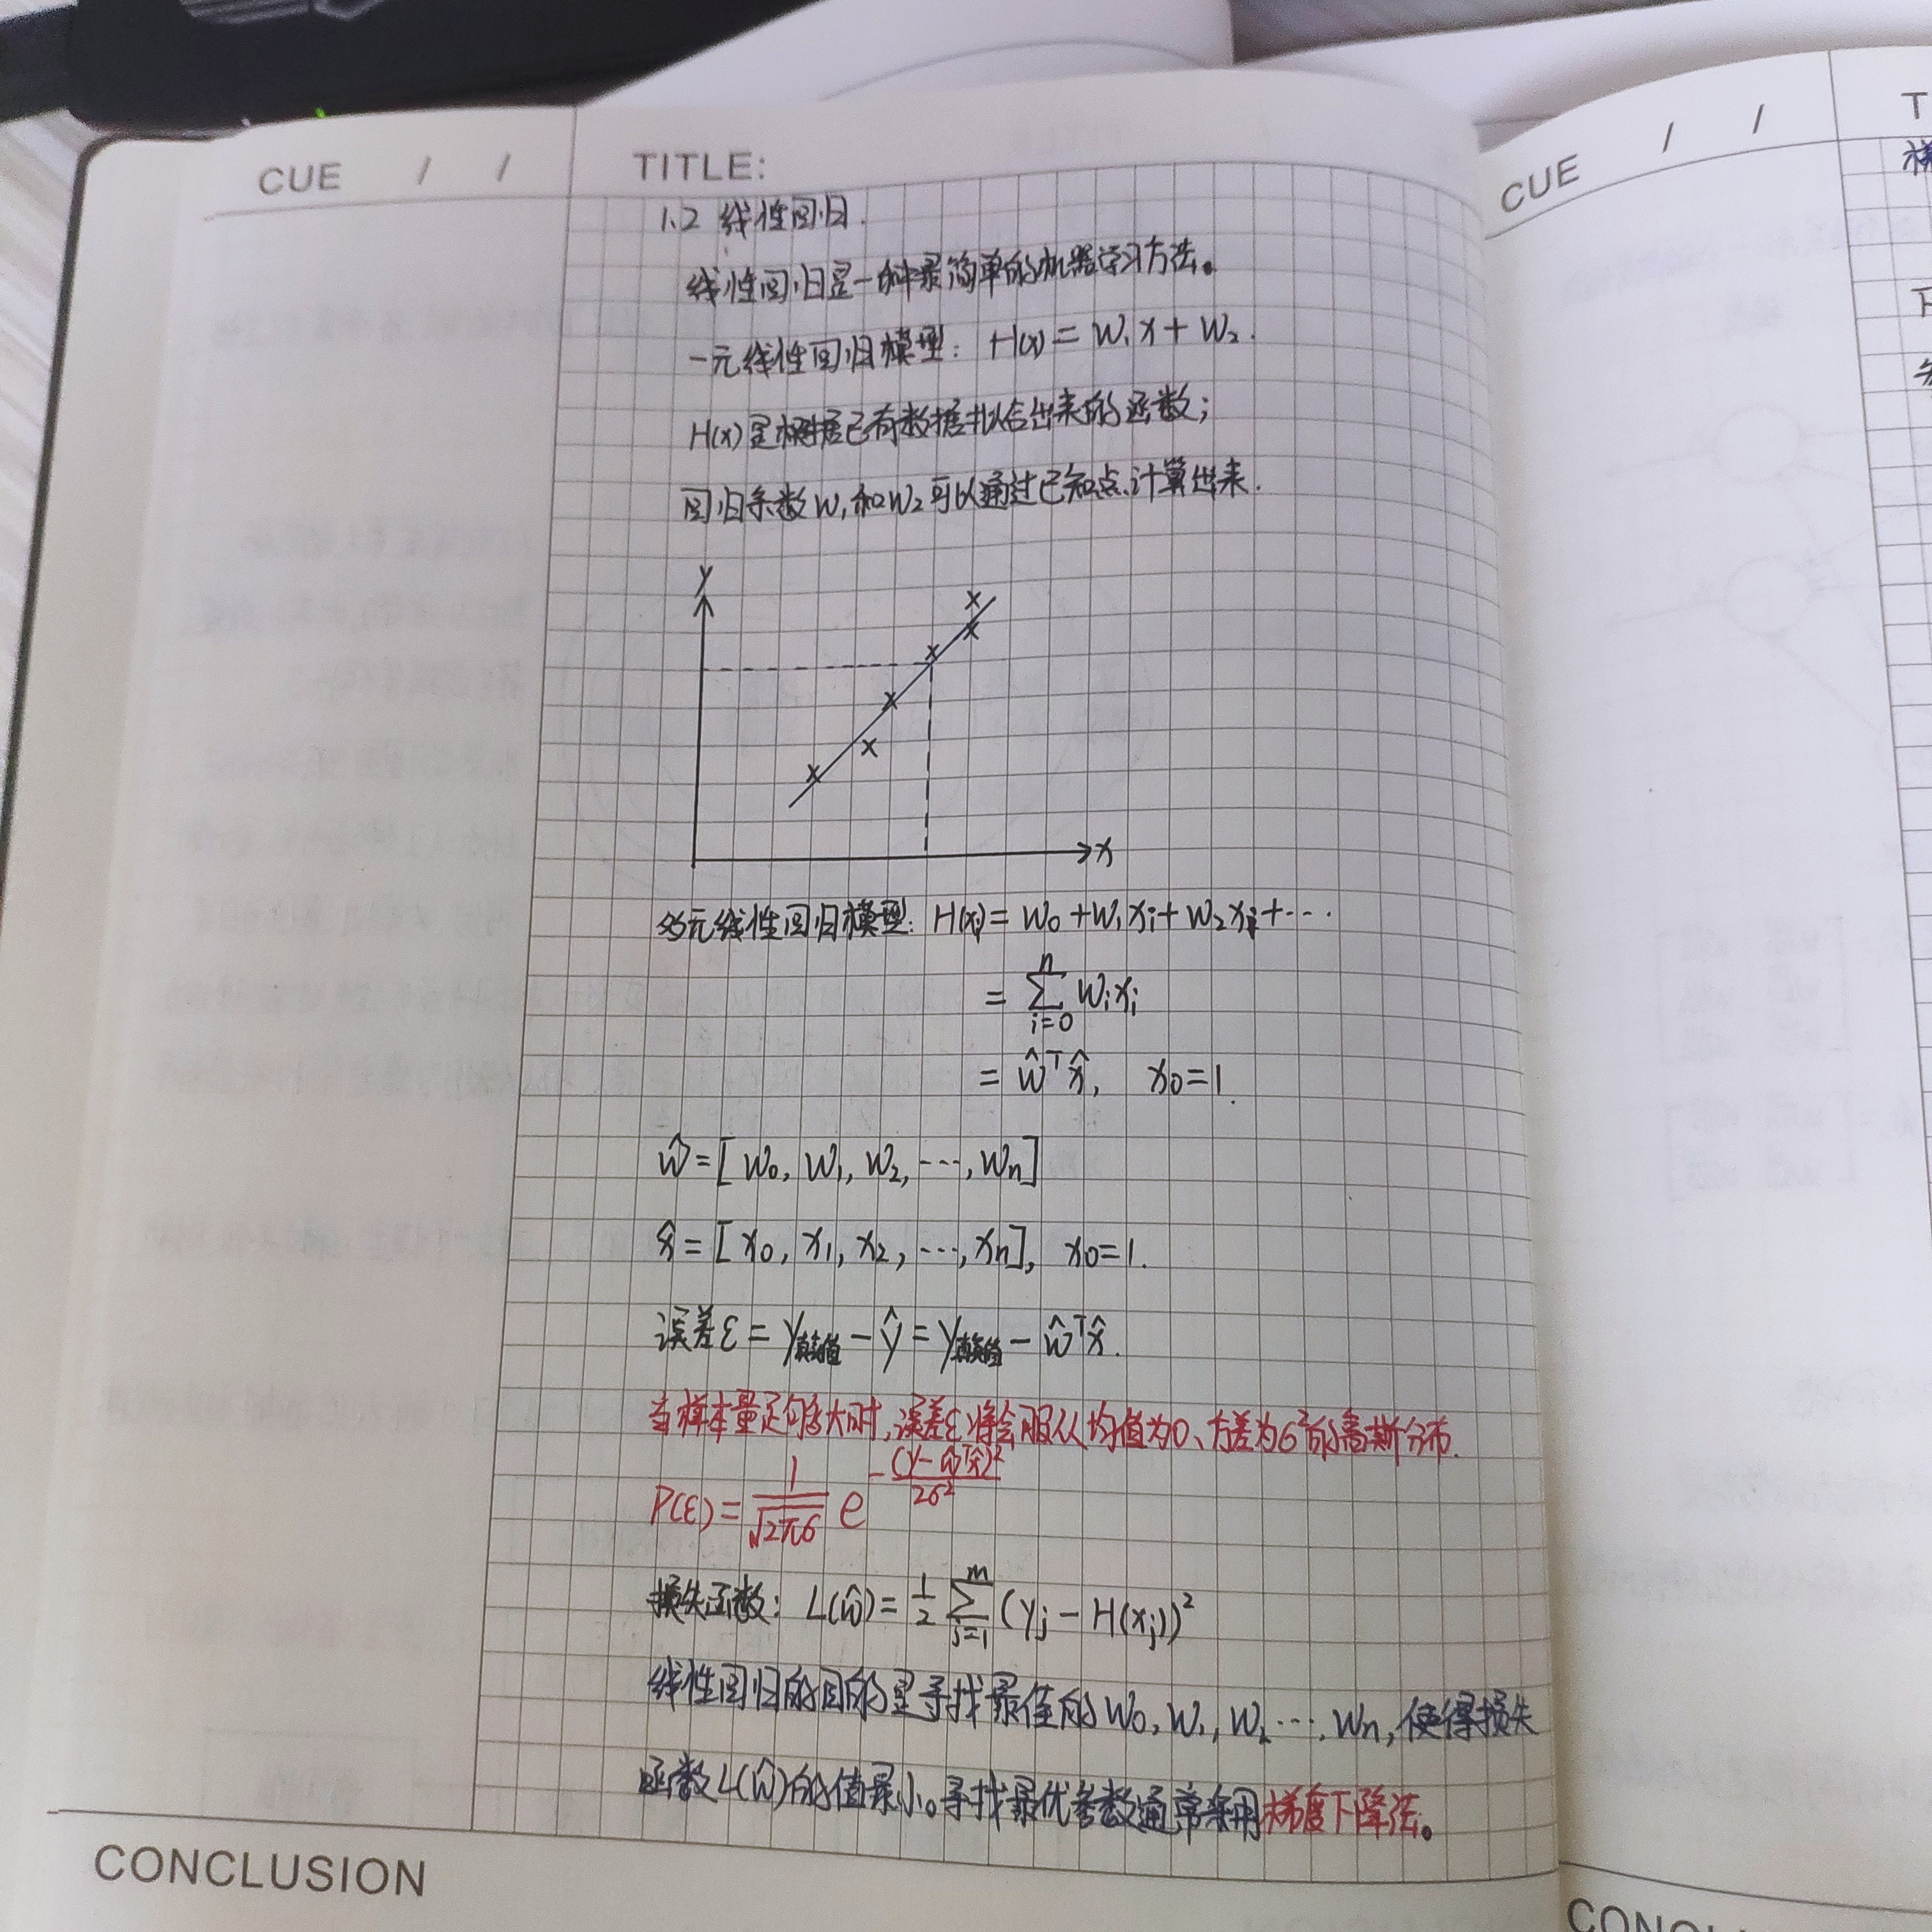 CUE / /
TITLE:
1.2 线性回归.
线性回归是一种最简单的机器学习方法。
一元线性回归模型: H(x) = W₁x + W₂.
H(x)是根据已有数据拟合出来的函数;
回归系数W₁和W₂可以通过已知点计算出来.
y
x
多元线性回归模型: H(xᵢ) = w₀ + w₁xᵢ + w₂xᵢ + ⋯
= ∑ⁿᵢ₌₀ wᵢxᵢ
= ŵᵀx̂, x₀=1.
ŵ = [w₀, w₁, w₂, ⋯, wₙ]
x̂ = [x₀, x₁, x₂, ⋯, xₙ], x₀=1.
误差ε = y真实值 − ŷ = y真实值 − ŵᵀx̂.
当样本量足够大时,误差ε将会服从均值为0、方差为σ²的高斯分布.
P(ε) = 1/√2πσ e^−(y−ŵᵀx̂)²/2σ²
损失函数: L(ŵ) = 1/2 ∑ᵐⱼ₌₁ (yⱼ − H(xⱼ))²
线性回归的目的是寻找最佳的W₀, W₁, W₂ ⋯, Wₙ, 使得损失
函数L(ŵ)的值最小。寻找最优参数通常采用梯度下降法。
CONCLUSION
CUE / /
T
CONC